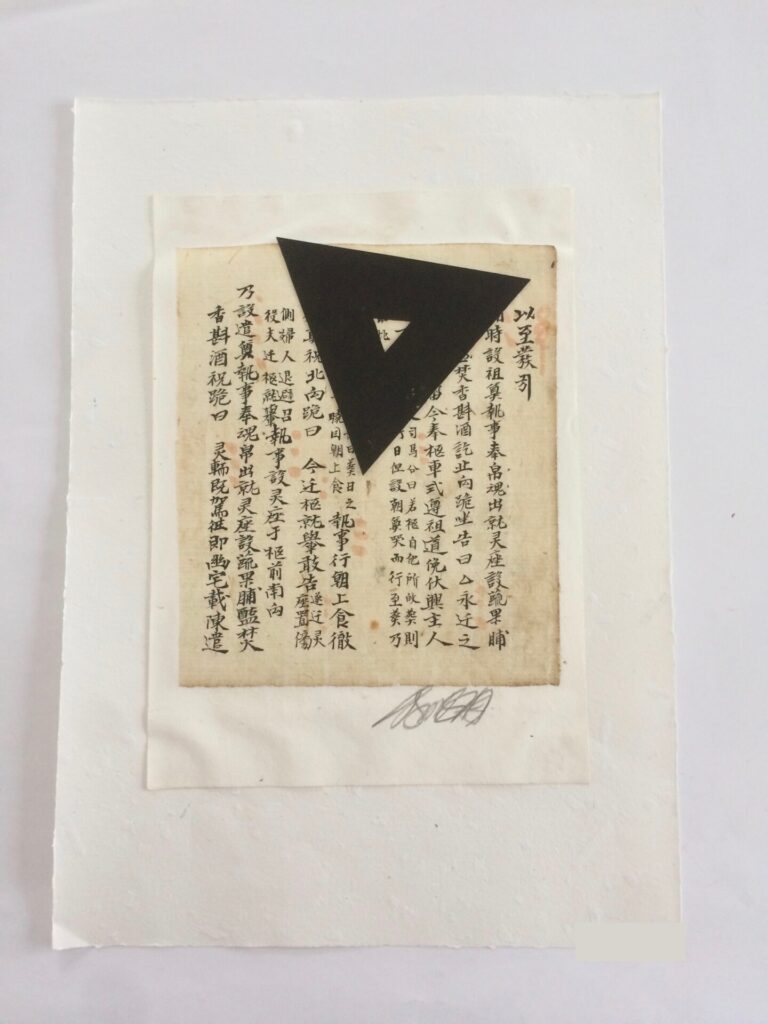 以至發引
時設祖奠執事奉帛魂出就灵座設蔬果脯
焚香斟酒訖北向跪告曰厶永迁之
今奉柩車式遵祖道俛伏興主人
司馬公曰若柩自他所 葬則
日但設朝奠哭而行至葬乃
葬日之
晚因朝上食
執事行朝上食徹
祝北向跪曰 今迁柩就舉敢告
遂迁灵
座置
側婦人退避召
役夫迁柩就舉
執事設灵座于柩前南向
乃設遣奠執事奉魂帛出就灵座設蔬果脯醢焚
香斟酒祝跪曰 灵輀既駕徃即幽宅載陳遣